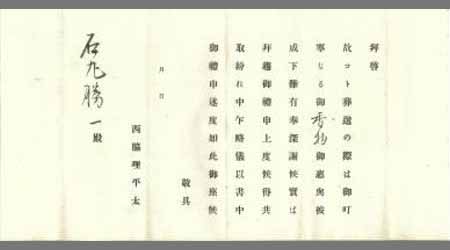 拜啓
故コト葬送の際は御叮
寧なる御香物御惠與被
成下難有奉深謝候實は
拜趨御禮申上度候得共
取紛れ中乍略儀以書中
御禮申述度如此御座候
敬具
月 日
西脇理平太
石丸勝一殿